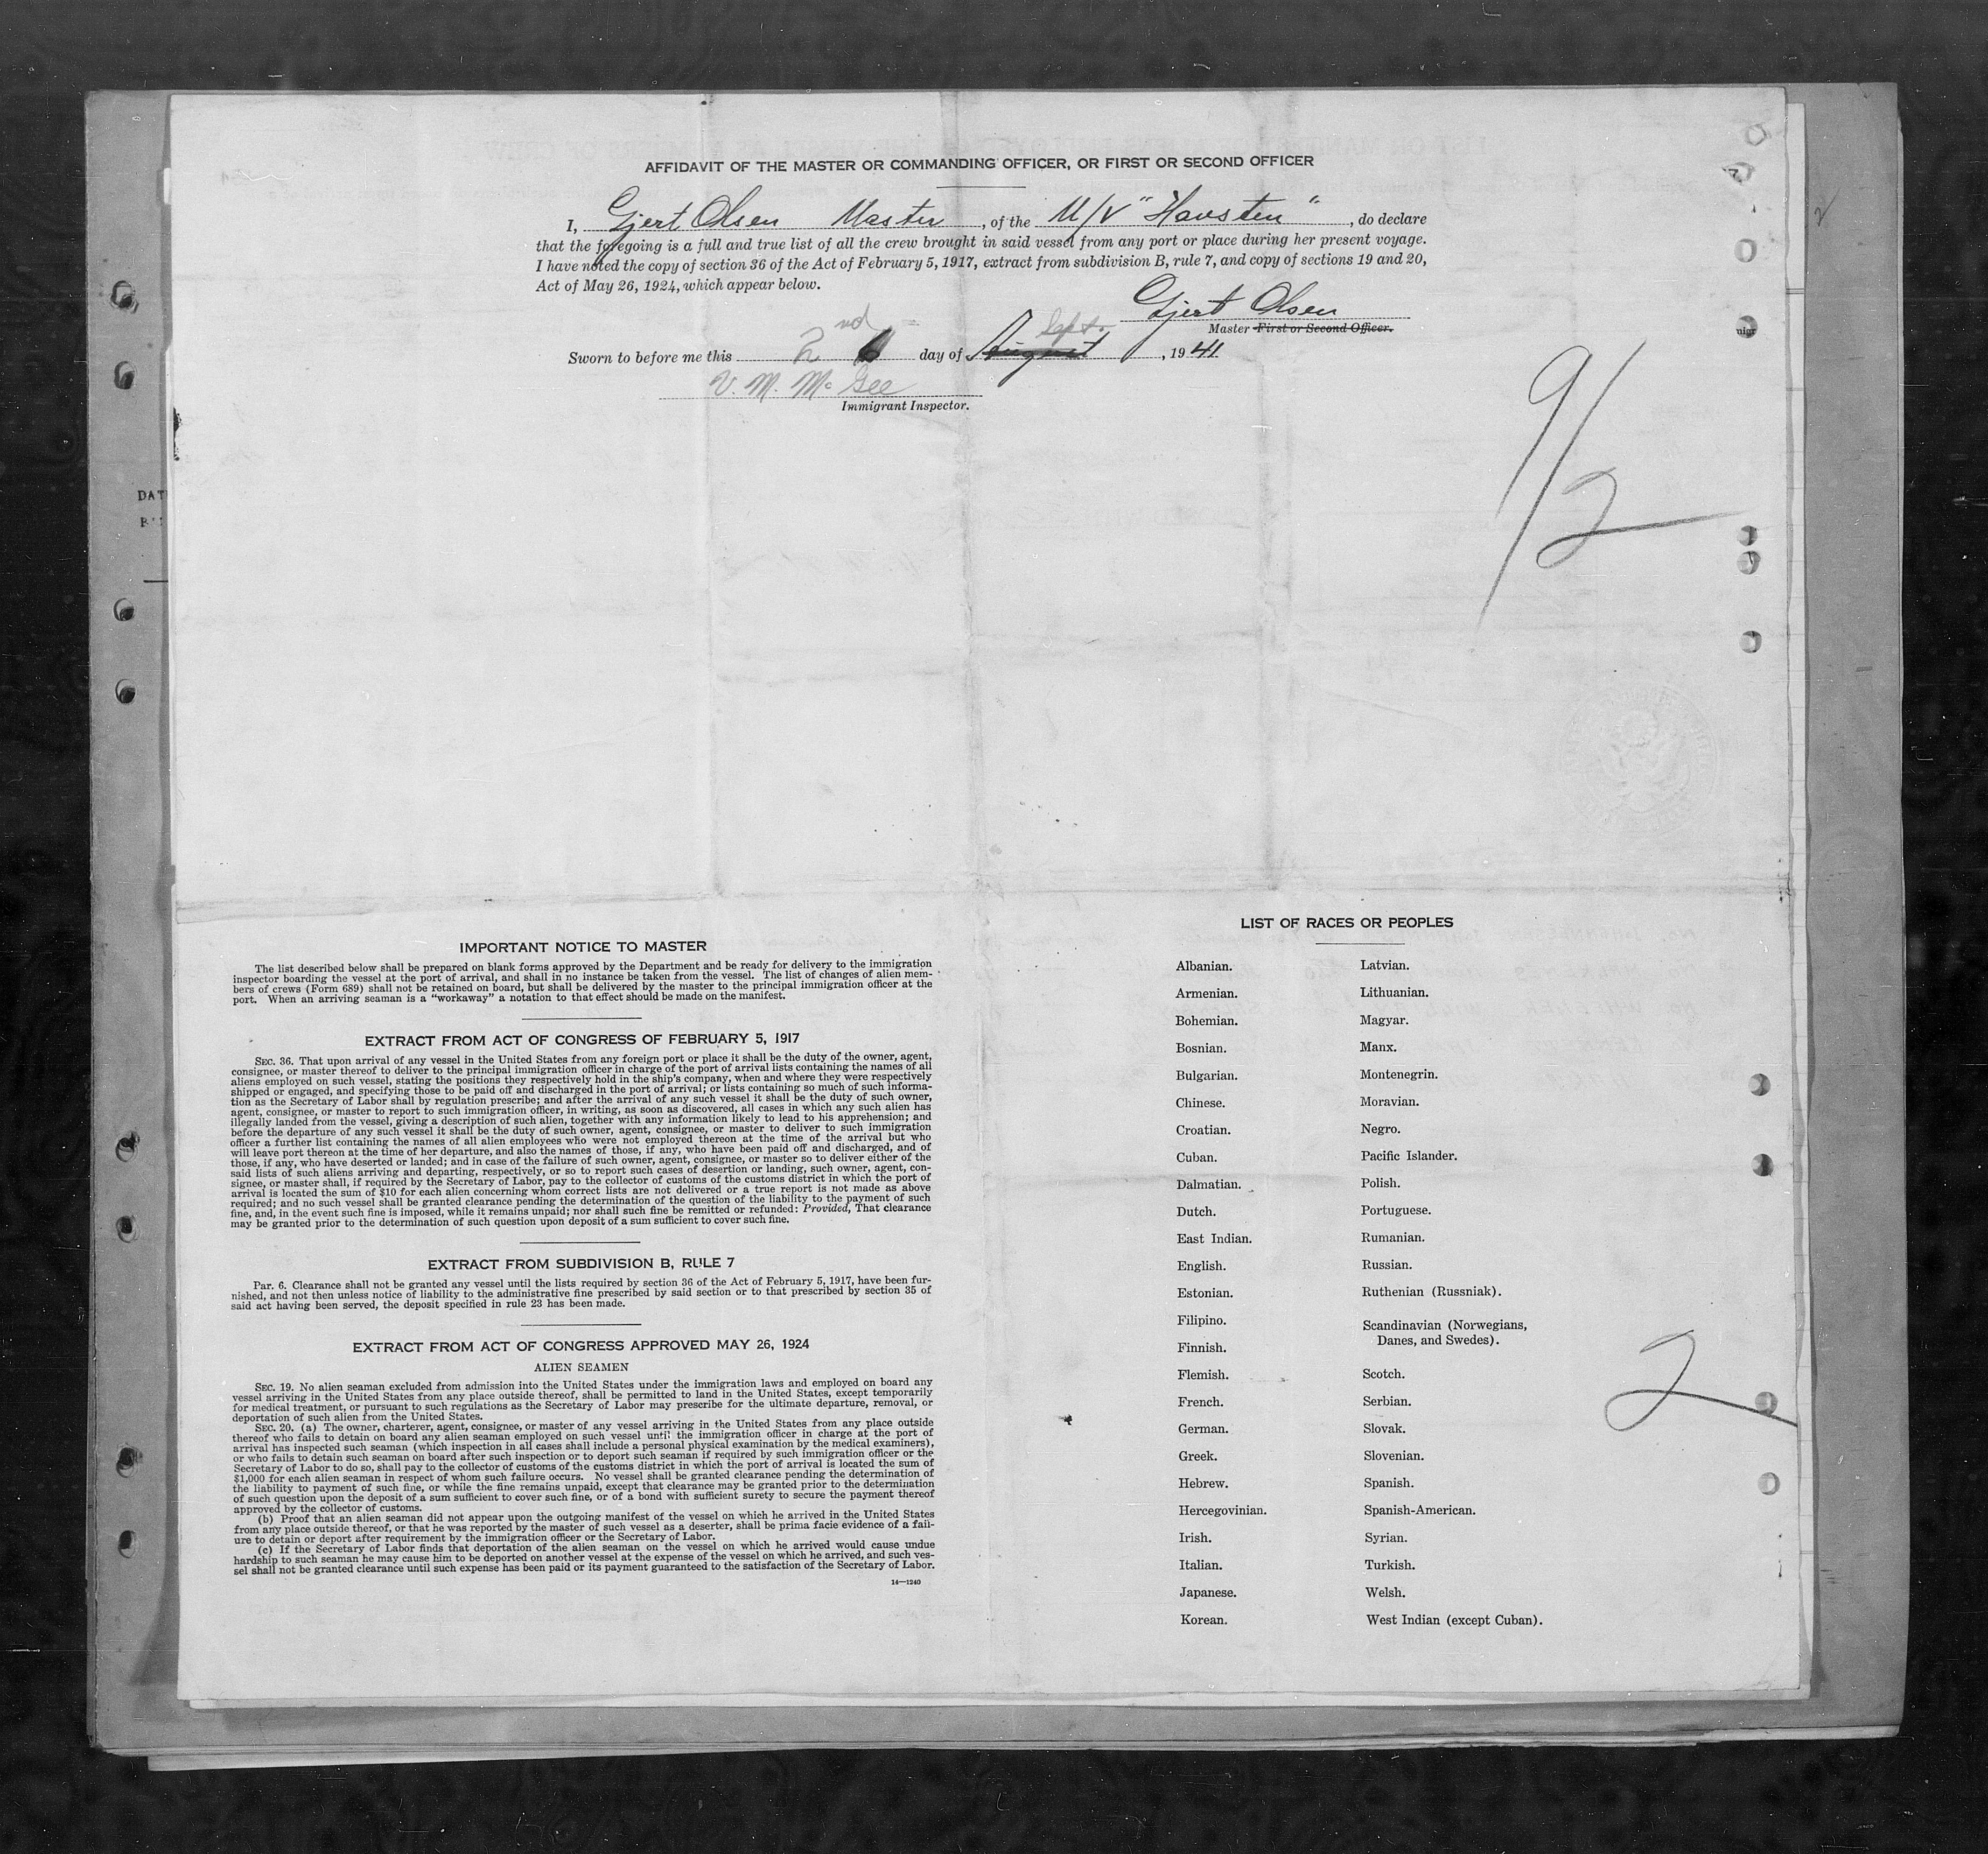 AFFIDAVIT OF THE MASTER OR COMMANDING OFFICER, OR FIRST OR SECOND OFFICER
I, Gjert Olsen Master, of the M/V "Havsten", do declare
that the foregoing is a full and true list of all the crew brought in said vessel from any port or place during her present voyage.
I have noted the copy of section 36 of the Act of February 5, 1917, extract from subdivision B, rule 7, and copy of sections 19 and 20,
Act of May 26, 1924, which appear below.
Gjert Olsen
Master First or Second Officer.
Sworn to before me this 2nd day of August Sept., 1941.
V. M. McGee
Immigrant Inspector.
9/2
DAT
IMPORTANT NOTICE TO MASTER
The list described below shall be prepared on blank forms approved by the Department and be ready for delivery to the immigration
inspector boarding the vessel at the port of arrival, and shall in no instance be taken from the vessel. The list of changes of alien mem-
bers of crews (Form 689) shall not be retained on board, but shall be delivered by the master to the principal immigration officer at the
port. When an arriving seaman is a "workaway" a notation to that effect should be made on the manifest.
EXTRACT FROM ACT OF CONGRESS OF FEBRUARY 5, 1917
SEC. 36. That upon arrival of any vessel in the United States from any foreign port or place it shall be the duty of the owner, agent,
consignee, or master thereof to deliver to the principal immigration officer in charge of the port of arrival lists containing the names of all
aliens employed on such vessel, stating the positions they respectively hold in the ship's company, when and where they were respectively
shipped or engaged, and specifying those to be paid off and discharged in the port of arrival; or lists containing so much of such informa-
tion as the Secretary of Labor shall by regulation prescribe; and after the arrival of any such vessel it shall be the duty of such owner,
agent, consignee, or master to report to such immigration officer, in writing, as soon as discovered, all cases in which any such alien has
illegally landed from the vessel, giving a description of such alien, together with any information likely to lead to his apprehension; and
before the departure of any such vessel it shall be the duty of such owner, agent, consignee, or master to deliver to such immigration
officer a further list containing the names of all alien employees who were not employed thereon at the time of the arrival but who
will leave port thereon at the time of her departure, and also the names of those, if any, who have been paid off and discharged, and of
those, if any, who have deserted or landed; and in case of the failure of such owner, agent, consignee, or master so to deliver either of the
said lists of such aliens arriving and departing, respectively, or so to report such cases of desertion or landing, such owner, agent, con-
signee, or master shall, if required by the Secretary of Labor, pay to the collector of customs of the customs district in which the port of
arrival is located the sum of $10 for each alien concerning whom correct lists are not delivered or a true report is not made as above
required; and no such vessel shall be granted clearance pending the determination of the question of the liability to the payment of such
fine, and, in the event such fine is imposed, while it remains unpaid; nor shall such fine be remitted or refunded: Provided, That clearance
may be granted prior to the determination of such question upon deposit of a sum sufficient to cover such fine.
EXTRACT FROM SUBDIVISION B, RULE 7
Par. 6. Clearance shall not be granted any vessel until the lists required by section 36 of the Act of February 5, 1917, have been fur-
nished, and not then unless notice of liability to the administrative fine prescribed by said section or to that prescribed by section 35 of
said act having been served, the deposit specified in rule 23 has been made.
EXTRACT FROM ACT OF CONGRESS APPROVED MAY 26, 1924
ALIEN SEAMEN
SEC. 19. No alien seaman excluded from admission into the United States under the immigration laws and employed on board any
vessel arriving in the United States from any place outside thereof, shall be permitted to land in the United States, except temporarily
for medical treatment, or pursuant to such regulations as the Secretary of Labor may prescribe for the ultimate departure, removal, or
deportation of such alien from the United States.
SEC. 20. (a) The owner, charterer, agent, consignee, or master of any vessel arriving in the United States from any place outside
thereof who fails to detain on board any alien seaman employed on such vessel until the immigration officer in charge at the port of
arrival has inspected such seaman (which inspection in all cases shall include a personal physical examination by the medical examiners),
or who fails to detain such seaman on board after such inspection or to deport such seaman if required by such immigration officer or the
Secretary of Labor to do so, shall pay to the collector of customs of the customs district in which the port of arrival is located the sum of
$1,000 for each alien seaman in respect of whom such failure occurs. No vessel shall be granted clearance pending the determination of
the liability to payment of such fine, or while the fine remains unpaid, except that clearance may be granted prior to the determination
of such question upon the deposit of a sum sufficient to cover such fine, or of a bond with sufficient surety to secure the payment thereof
approved by the collector of customs.
(b) Proof that an alien seaman did not appear upon the outgoing manifest of the vessel on which he arrived in the United States
from any place outside thereof, or that he was reported by the master of such vessel as a deserter, shall be prima facie evidence of a fail-
ure to detain or deport after requirement by the immigration officer or the Secretary of Labor.
(c) If the Secretary of Labor finds that deportation of the alien seaman on the vessel on which he arrived would cause undue
hardship to such seaman he may cause him to be deported on another vessel at the expense of the vessel on which he arrived, and such ves-
sel shall not be granted clearance until such expense has been paid or its payment guaranteed to the satisfaction of the Secretary of Labor.
14—1240
LIST OF RACES OR PEOPLES
Albanian.
Armenian.
Bohemian.
Bosnian.
Bulgarian.
Chinese.
Croatian.
Cuban.
Dalmatian.
Dutch.
East Indian.
English.
Estonian.
Filipino.
Finnish.
Flemish.
French.
German.
Greek.
Hebrew.
Hercegovinian.
Irish.
Italian.
Japanese.
Korean.
Latvian.
Lithuanian.
Magyar.
Manx.
Montenegrin.
Moravian.
Negro.
Pacific Islander.
Polish.
Portuguese.
Rumanian.
Russian.
Ruthenian (Russniak).
Scandinavian (Norwegians,
Danes, and Swedes).
Scotch.
Serbian.
Slovak.
Slovenian.
Spanish.
Spanish-American.
Syrian.
Turkish.
Welsh.
West Indian (except Cuban).
2